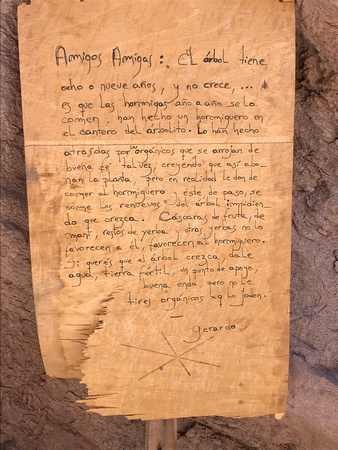 Amigos Amigas: El árbol tiene
ocho o nueve años, y no crece, ...
es que las hormigas año a año se lo
comen, han hecho un hormiguero en
el cantero del árbolito. Lo han hecho
atraídas por orgánicos que se arrojan de
buena fé talvez, creyendo que así abo-
nan la planta, pero en realidad le dan de
comer al hormiguero, éste, de paso, se
come los renuevos del árbol impidien-
do que crezca. Cáscaras de fruta, de
maní, restos de yerba y otras yerbas no lo
favorecen a él, favorecen al hormiguero.
Si querés que el árbol crezca, dale
agua, tierra fértil, un punto de apoyo,
buena onda, pero no le
tires orgánicos xq lo joden.
Gerardo